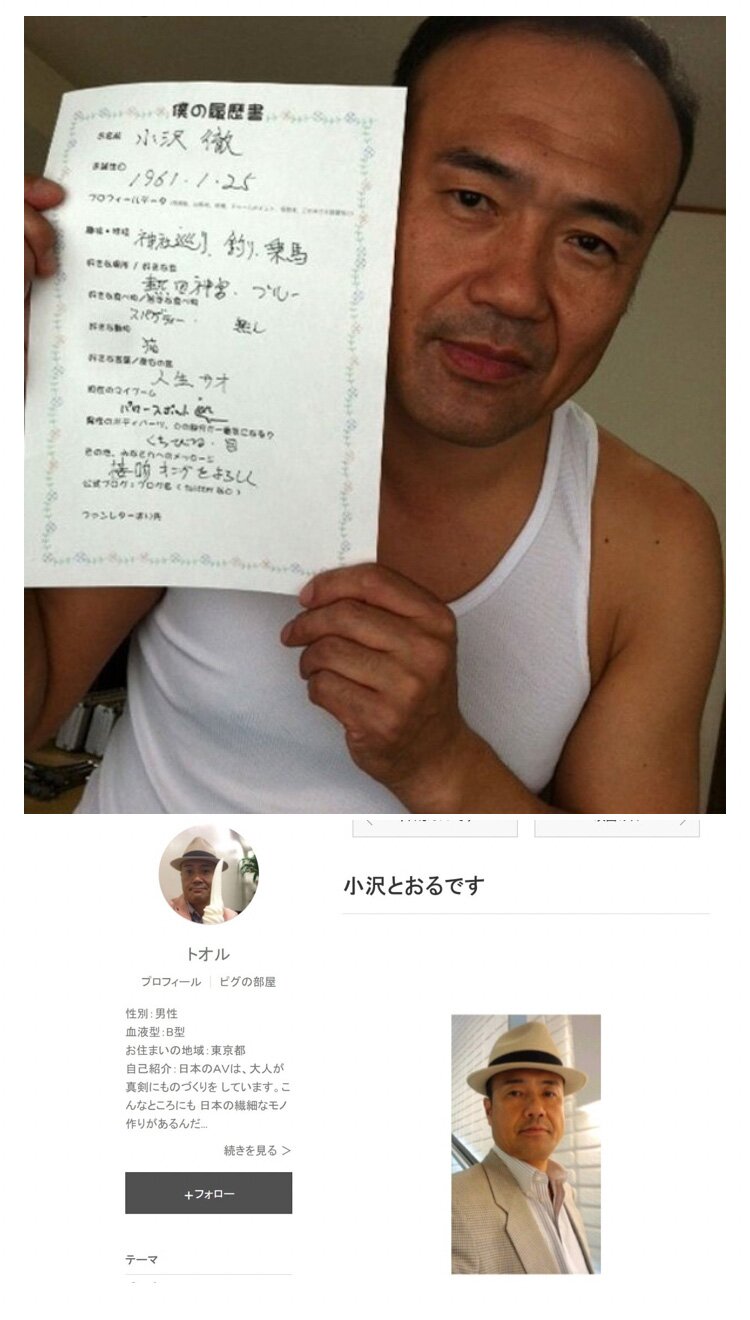 僕の履歴書
お名前 小沢 徹
お誕生日 1961.1.25
プロフィールデータ
趣味・特技 神社巡り、釣り、乗馬
好きな場所/好きな色
熱田神宮、ブルー
好きな食べ物/苦手な食べ物
スパゲティー・ 無し
好きな動物
猫
好きな言葉/座右の銘
人生サオ
現在のマイブーム
パワースポット
異性のボディパーツ、どの部分が一番気になる?
くちびる・
その他、みなさんへのメッセージ
をよろしく
公式ブログ:ブログ名(twitter ID)
ファンレターあて先
小沢とおるです
トオル
プロフィール | ピグの部屋
性別:男性
血液型:B型
お住まいの地域:東京都
自己紹介:日本のAVは、大人が
真剣にものづくりを しています。こ
んなところにも 日本の繊細なモノ
作りがあるんだ...
続きを見る >
+フォロー
テーマ